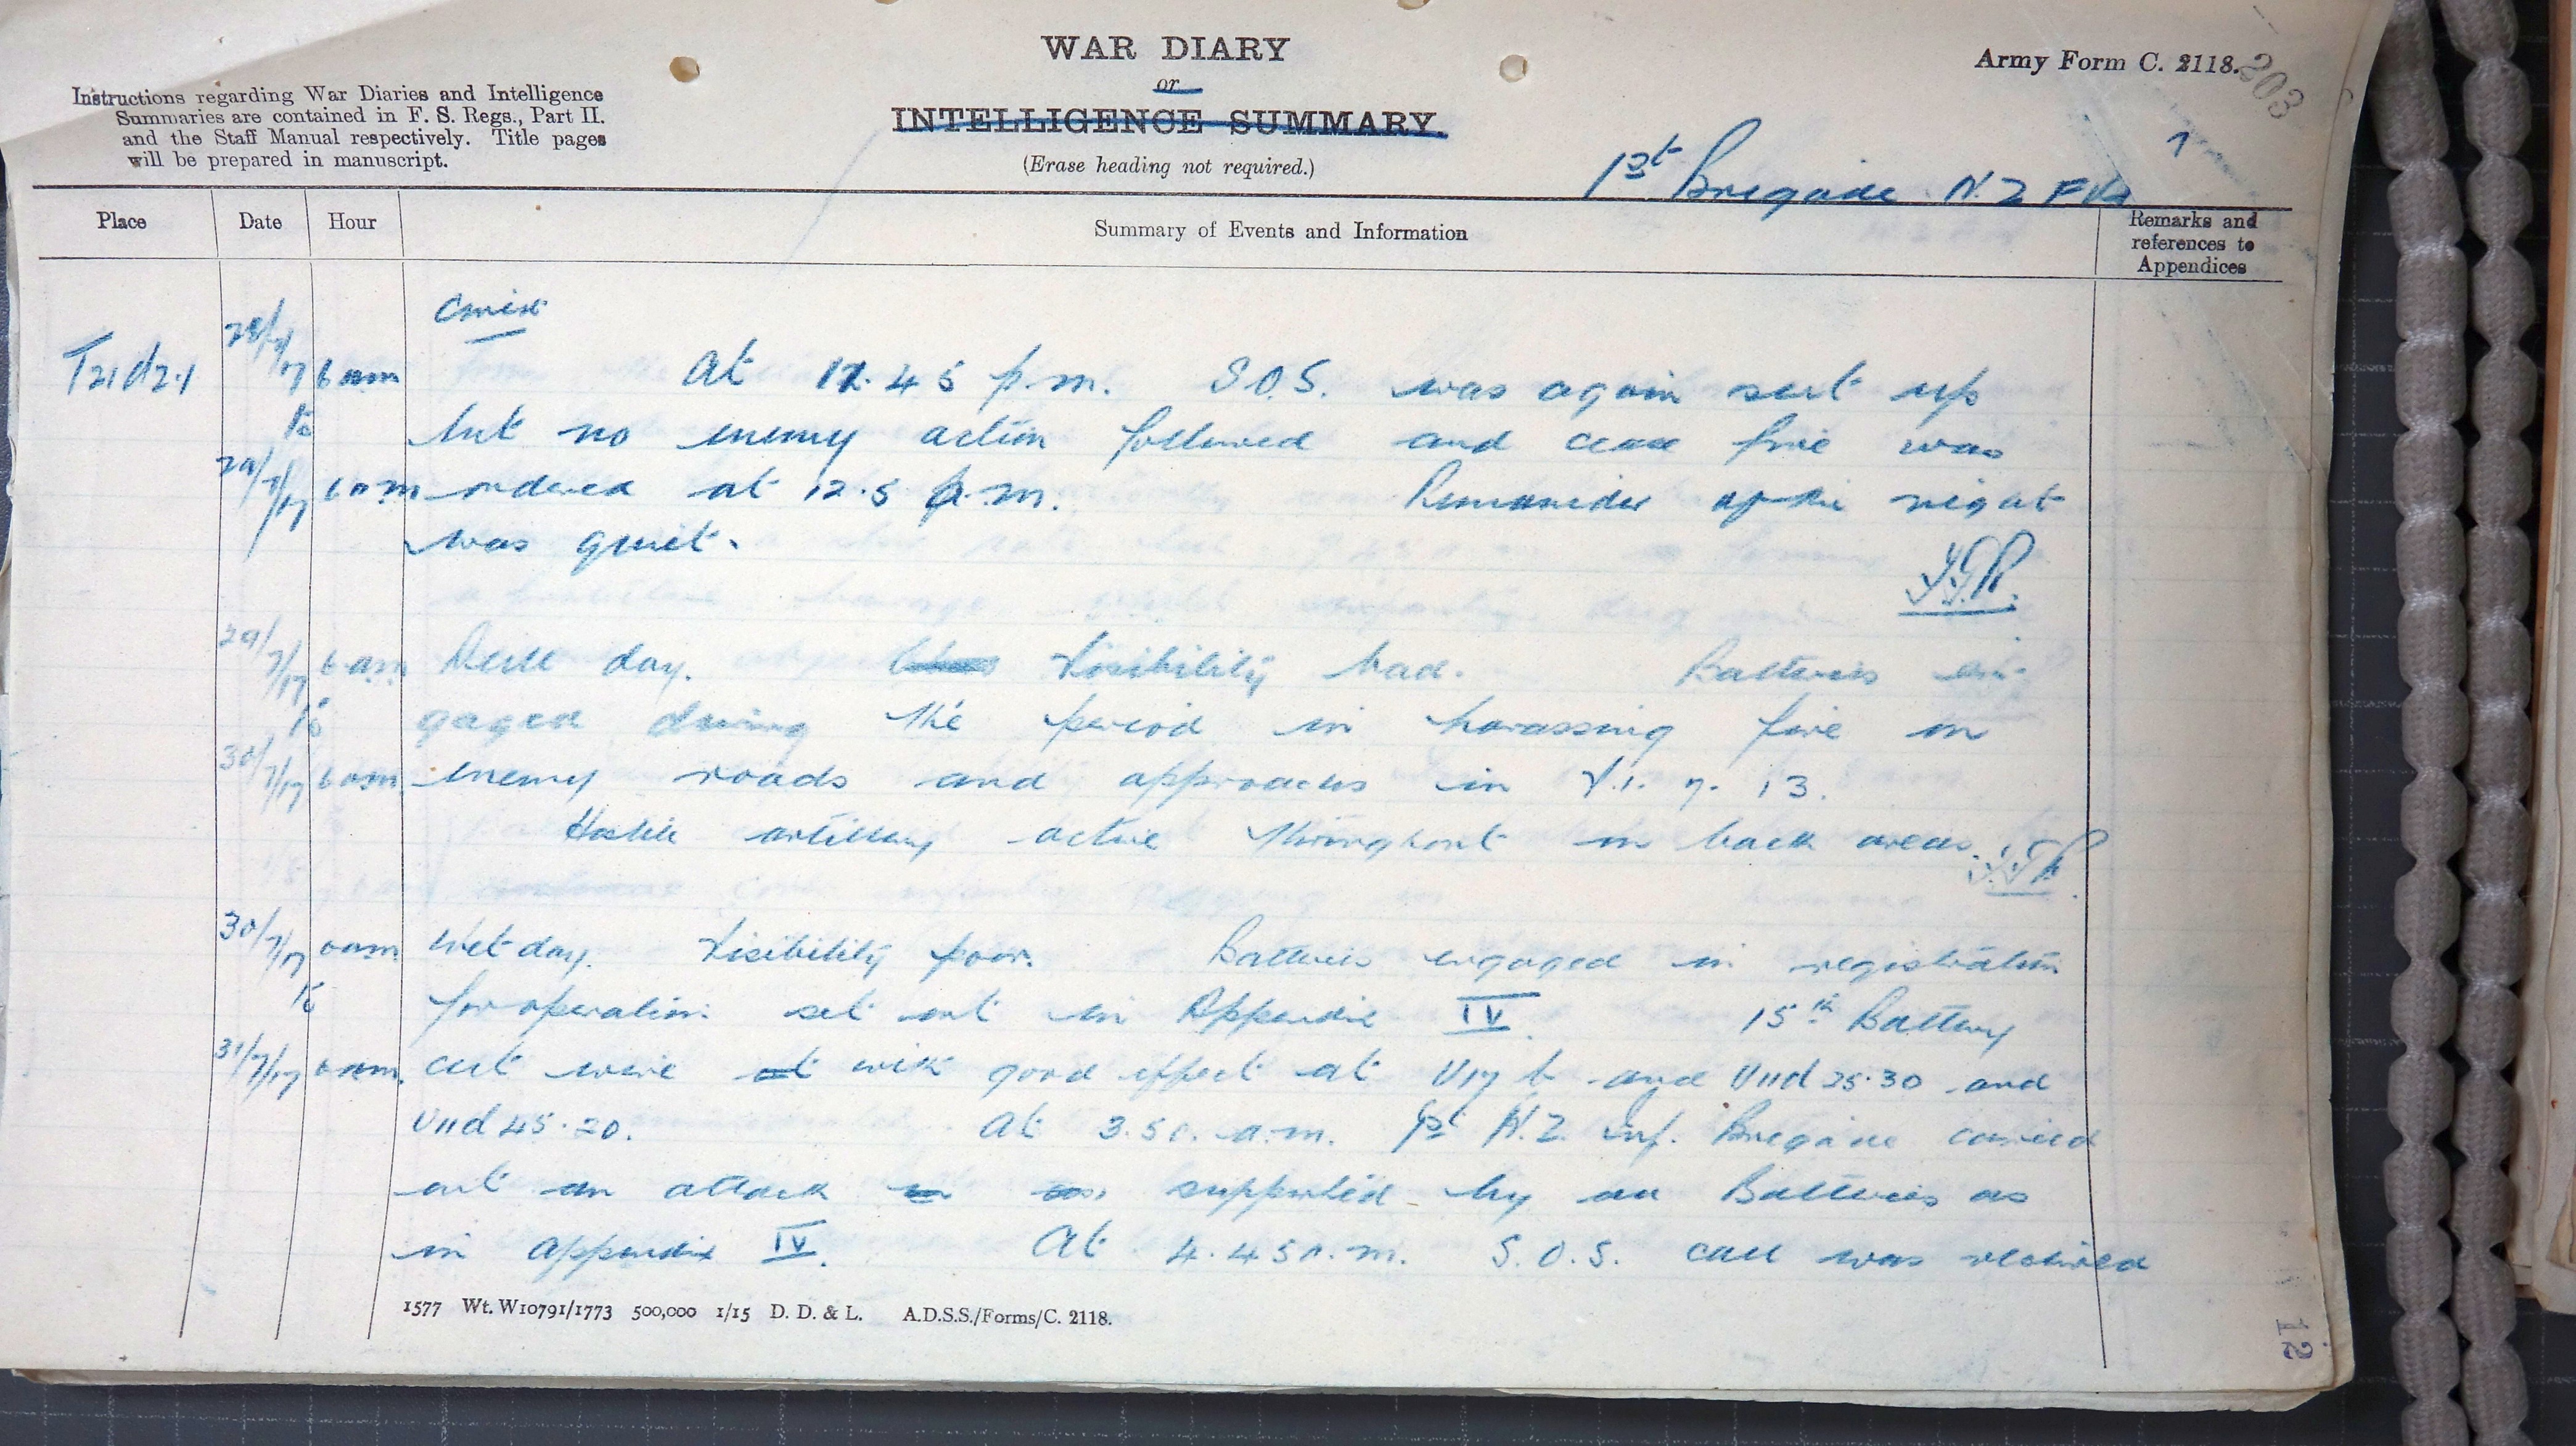 WAR DIARY
or
INTELLIGENCE SUMMARY.
(Erase heading not required.)
Army Form C. 2118.
203
Instructions regarding War Diaries and Intelligence
Summaries are contained in F. S. Regs., Part II.
and the Staff Manual respectively. Title pages
will be prepared in manuscript.
1st Brigade N.Z F.A
Place Date Hour Summary of Events and Information Remarks and references to Appendices
T21d2.1 28/7/17 6 am At 11.45 p.m. S.O.S. was again sent up
to but no enemy action followed and cease fire was
29/7/17 6 am ordered at 12.5 a.m. Remainder of the night
was quiet.
29/7/17 6 am Dull day. Visibility bad. Batteries en-
to gaged during the period in harassing fire on
30/7/17 6 am enemy roads and approaches in V.1. 7. 13.
Hostile artillery active throughout on back areas.
30/7/17 6am Wet day. Visibility poor. Batteries engaged in registration
to for operation set out in Appendix IV. 15th Battery
31/7/17 6am. cut wire with good effect at U17 b and U11d 25.30 and
U11d 45.20. At 3.50. a.m. 1st N.Z. Inf. Brigade carried
out an attack supported by all Batteries as
in appendix IV. At 4.45 a.m. S.O.S. call was received
1577 Wt. W10791/1773 500,000 1/15 D. D. & L. A.D.S.S./Forms/C. 2118.
12